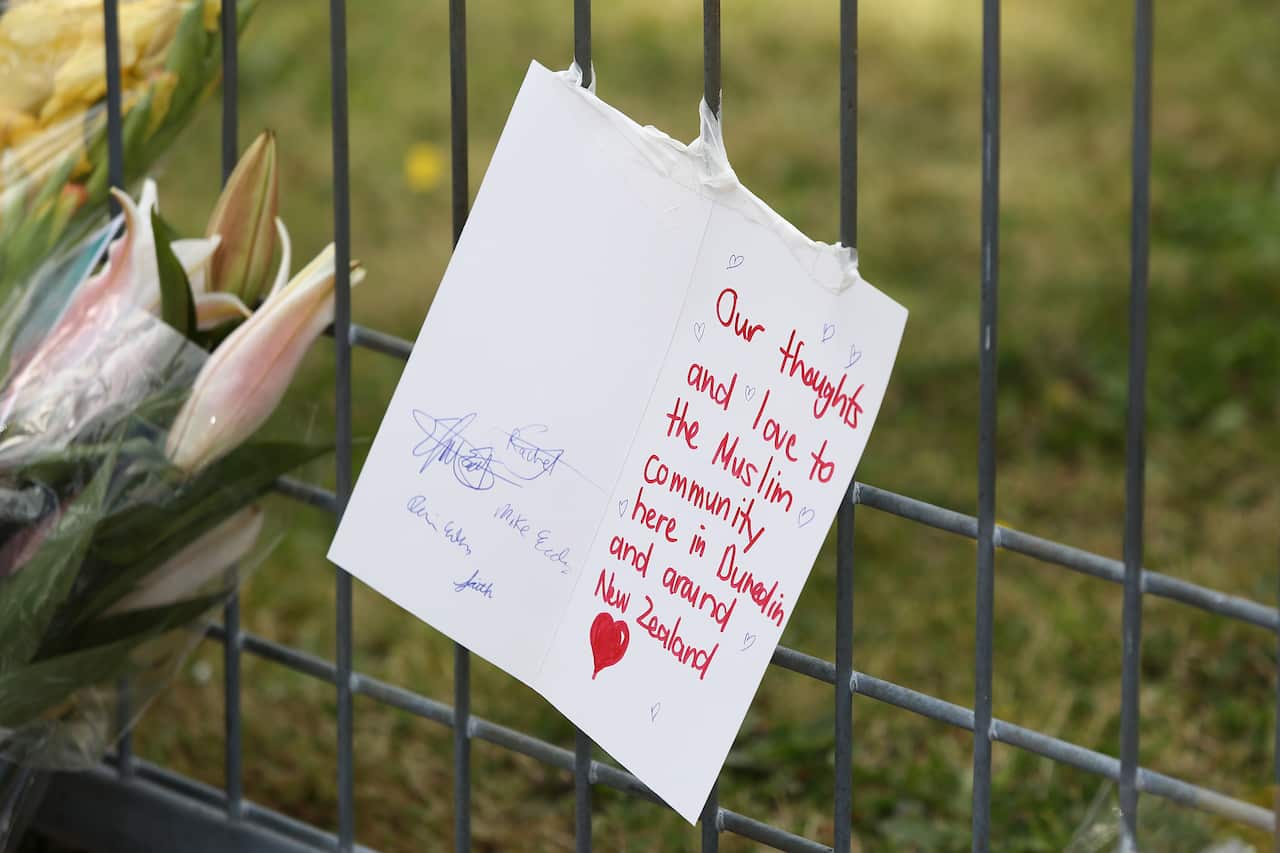 Rachel
Mike
faith
Our thoughts
and love to
the Muslim
community
here in Dunedin
and around
New Zealand